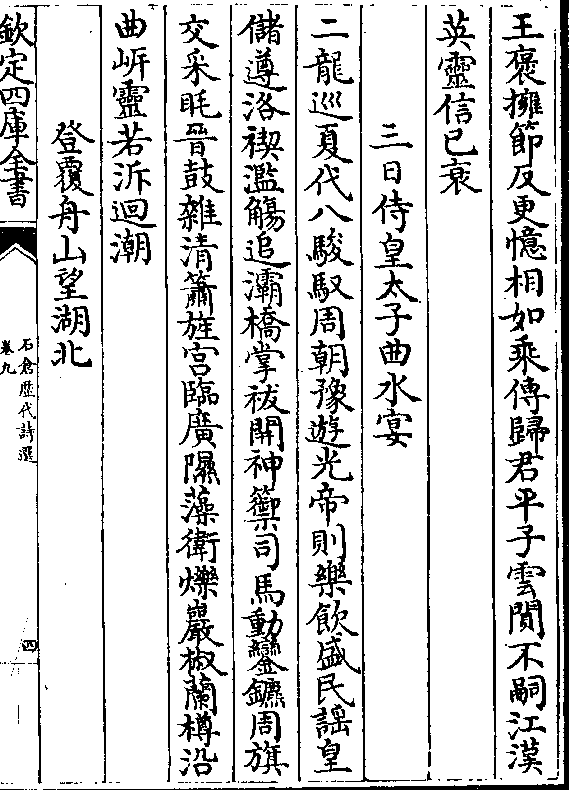 王褒擁節反更憶相如乘傳歸君平子雲閴不嗣江漢
英靈信已衰
三日侍皇太子曲水宴
二龍巡夏代八駿馭周朝豫遊光帝則樂飲盛民謡皇
儲遵洛禊濫觴追灞橋掌祓開神籞司馬動鑾鑣周旗
交采眊晉鼓雜清簫旌宫臨廣隰藻衛爍巖椒蘭樽沿
曲岍靈若泝迴潮
登覆舟山望湖北
欽定四庫全書
石倉歴代詩選
卷九
四